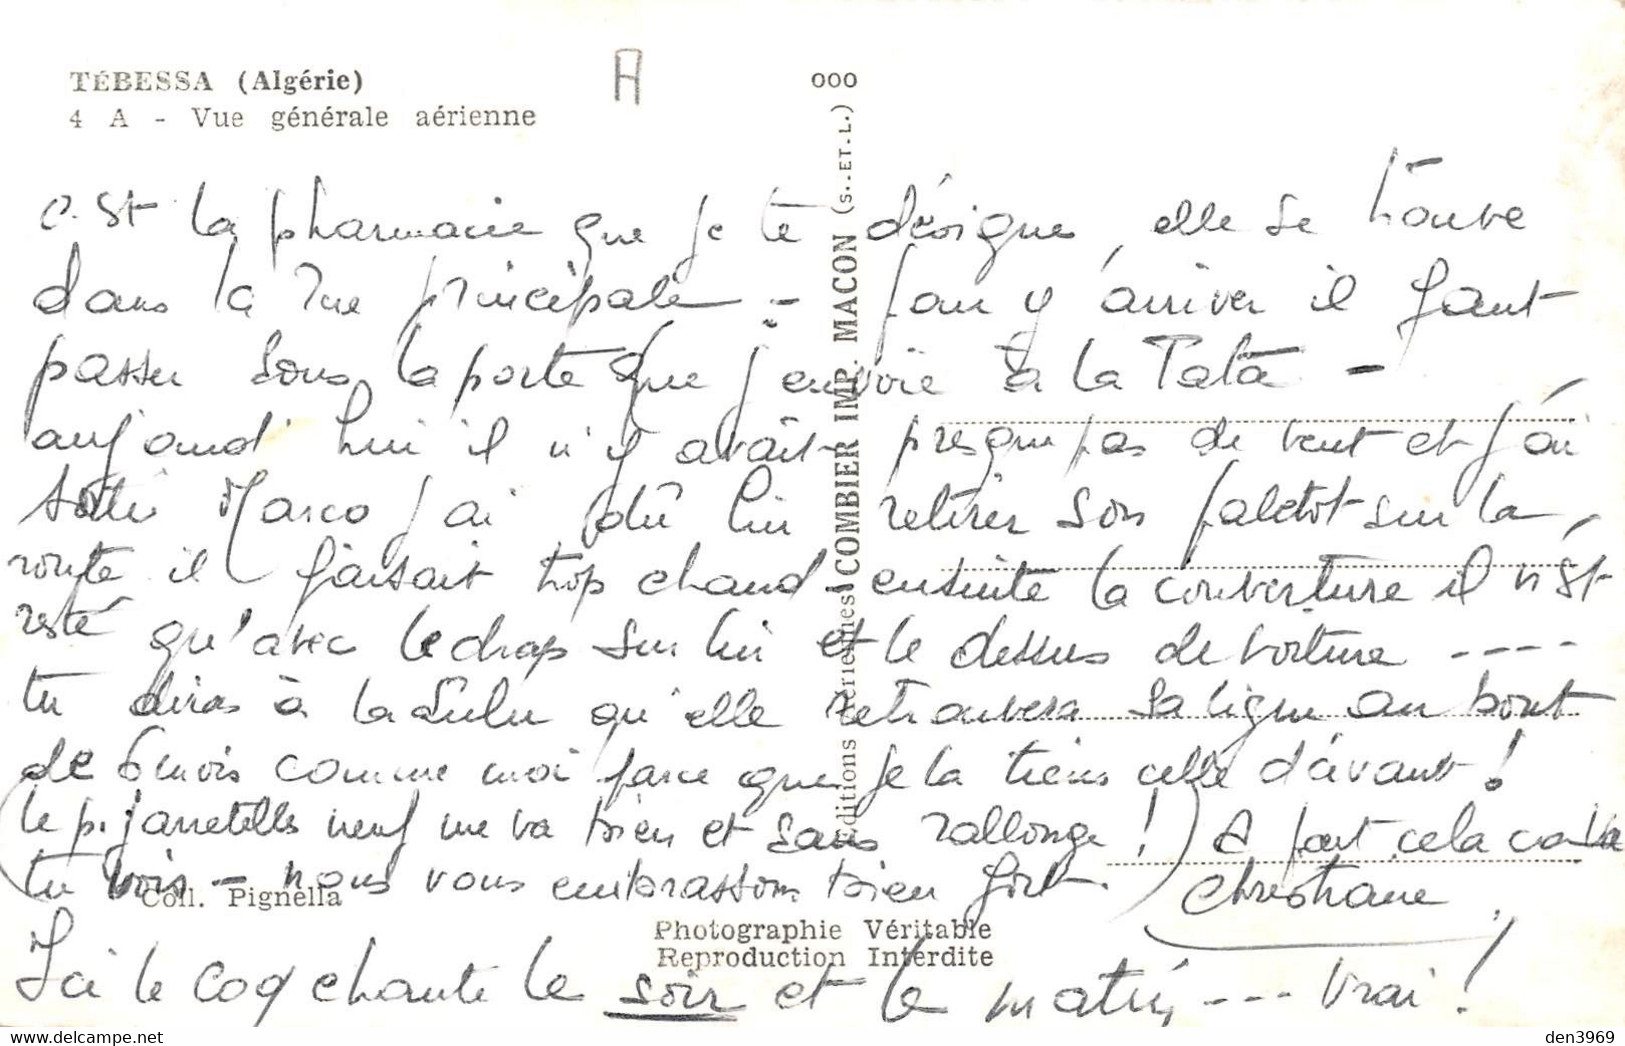 TÉBESSA (Algérie)
4 A - Vue générale aérienne
A
000
Editions Aériennes COMBIER IMP. MACON (S..ET.L.)
c'est la pharmacie que je te désigne, elle se trouve
dans la rue principale - pour y arriver il faut
passer sous la porte que j'envoie à la Tata -
aujourd'hui il n'y avait presque pas de vent et j'ai
sorti Marco j'ai dû lui retirer son paletot sur la
route il faisait trop chaud ensuite la couverture il n'est
resté qu'avec le drap sur lui et le dessus de voiture ----
tu diras à la Lulu qu'elle retrouvera sa ligne au bout
de 6 mois comme moi parce que je la tiens celle d'avant !
(le p. jarretelles neuf me va bien et sans rallonge !) A part cela ca va
tu vois - nous vous embrassons bien fort. Christiane
Coll. Pignella
Photographie Véritable
Reproduction Interdite
Ici le coq chante le soir et le matin --- vrai !
den3969